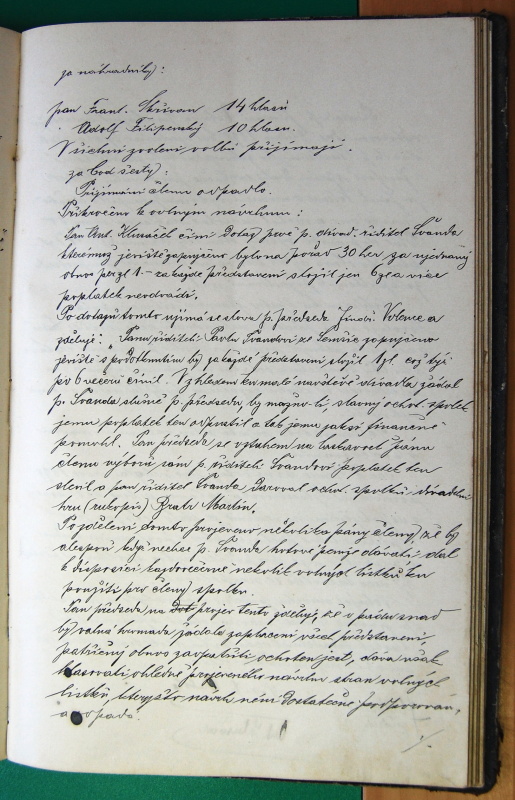 za náhradníky:
pan Frant. Skřivan 14 hlasů
" Adolf Filipenský 10 hlasů.
Všichni zvolení volbu přijímají.
za bod šestý:
Přijímání členů odpadlo.
Přikročeno k volným návrhům:
Pan Ant. činí dotaz proč p. divad. ředitel Švanda
kterémuž jeviště zapůjčeno bylo na pořad 30 her za ujednaný
obnos per zl 1.- za každé představení složil jen 6 zl a více
poplatek neodvádí.
Po dotazu tomto ujímá se slova p. předseda Jindř. Volence a
sděluje: „Panu řediteli Pavlu Švandovi ze Semčic zapůjčeno
jeviště s podotknutím by za každé představení složil 1 zl. což týž
po 6 večerů činil. Vzhledem ku malé návštěvě divadla žádal
p. Švanda slušně p. předsedu, by možno-li, slavný ochot. spolek
jemu poplatek ten odpustil a tak jemu jaksi finančně
pomohl. Pan předseda se vztahem na laskavost pánů
členů výboru sám p. řediteli Švandovi poplatek ten
slevil a pan ředitel Švanda daroval ochot. spolku divadelní
hru (rukopis) Bratr Martin.
Po sdělení tomto projeveno několika pány členy, že by
alespoň když nechce p. Švanda hotové peníze dávati, dal
k disposici každovečerně několik volných lístků ku
použití pro členy spolku.
Pan předseda na projev tento sděluje, že v pádu snad
by valná hromada žádala zaplacení všech představení,
patřičný obnos zaopatřiti ochoten jest, dává však
hlasovati ohledně projeveného návrhu stran volných
lístků, kterýžto návrh není dostatečně podporován,
a odpadá.